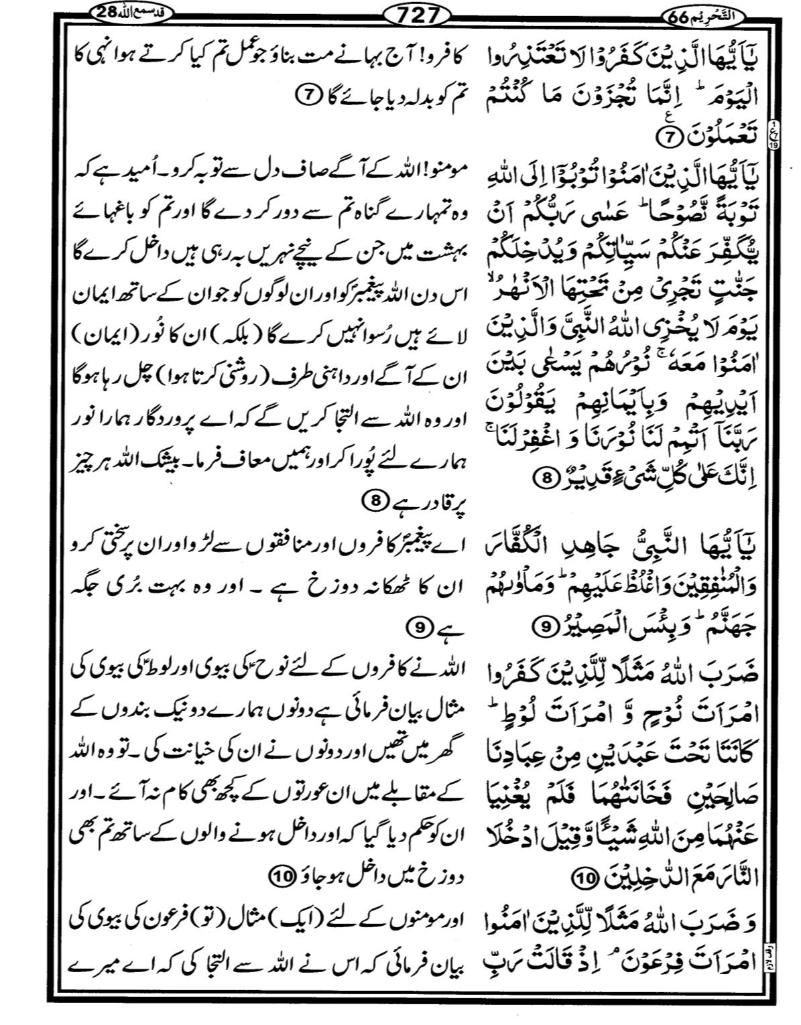 التَّحۡرِیۡم 66
727
قد سمع اللہ 28
یٰۤاَیُّهَا الَّذِیۡنَ کَفَرُوۡا لَا تَعۡتَذِرُوا
الۡیَوۡمَ ؕ اِنَّمَا تُجۡزَوۡنَ مَا کُنۡتُمۡ
تَعۡمَلُوۡنَ ۷
یٰۤاَیُّهَا الَّذِیۡنَ اٰمَنُوۡا تُوۡبُوۡۤا اِلَی اللّٰهِ
تَوۡبَۃً نَّصُوۡحًا ؕ عَسٰی رَبُّکُمۡ اَنۡ
یُّکَفِّرَ عَنۡکُمۡ سَیِّاٰتِکُمۡ وَیُدۡخِلَکُمۡ
جَنّٰتٍ تَجۡرِیۡ مِنۡ تَحۡتِهَا الۡاَنۡهٰرُ ۙ
یَوۡمَ لَا یُخۡزِی اللّٰهُ النَّبِیَّ وَالَّذِیۡنَ
اٰمَنُوۡا مَعَهٗ ۚ نُوۡرُهُمۡ یَسۡعٰی بَیۡنَ
اَیۡدِیۡهِمۡ وَبِاَیۡمَانِهِمۡ یَقُوۡلُوۡنَ
رَبَّنَاۤ اَتۡمِمۡ لَنَا نُوۡرَنَا وَ اغۡفِرۡلَنَا ۚ
اِنَّکَ عَلٰی کُلِّ شَیۡءٍ قَدِیۡرٌ 8
یٰۤاَیُّهَا النَّبِیُّ جَاهِدِ الۡکُفَّارَ
وَالۡمُنٰفِقِیۡنَ وَاغۡلُظۡ عَلَیۡهِمۡ ؕ وَمَاۡوٰىهُمۡ
جَهَنَّمُ ؕ وَبِئۡسَ الۡمَصِیۡرُ 9
ضَرَبَ اللّٰهُ مَثَلًا لِّلَّذِیۡنَ کَفَرُوا
امۡرَاَتَ نُوۡحٍ وَّ امۡرَاَتَ لُوۡطٍ ؕ
کَانَتَا تَحۡتَ عَبۡدَیۡنِ مِنۡ عِبَادِنَا
صَالِحَیۡنِ فَخَانَتٰهُمَا فَلَمۡ یُغۡنِیَا
عَنۡهُمَا مِنَ اللّٰهِ شَیۡـًٔا وَّقِیۡلَ ادۡخُلَا
النَّارَ مَعَ الدّٰخِلِیۡنَ 10
وَ ضَرَبَ اللّٰهُ مَثَلًا لِّلَّذِیۡنَ اٰمَنُوا
امۡرَاَتَ فِرۡعَوۡنَ ۘ اِذۡ قَالَتۡ رَبِّ
کافرو! آج بہانے مت بناؤ جو عمل تم کیا کرتے ہو انہی کا
تم کو بدلہ دیا جائے گا 7
مومنو! اللہ کے آگے صاف دل سے توبہ کرو۔ اُمید ہے کہ
وہ تمہارے گناہ تم سے دور کر دے گا اور تم کو باغہائے
بہشت میں جن کے نیچے نہریں بہ رہی ہیں داخل کرے گا
اس دن اللہ پیغمبرؐ کو اور ان لوگوں کو جو ان کے ساتھ ایمان
لائے ہیں رُسوا نہیں کرے گا (بلکہ) ان کا نُور (ایمان)
ان کے آگے اور داہنی طرف (روشنی کرتا ہوا) چل رہا ہوگا
اور وہ اللہ سے التجا کریں گے کہ اے پروردگار ہمارا نور
ہمارے لئے پُورا کر اور ہمیں معاف فرما۔ بیشک اللہ ہر چیز
پر قادر ہے 8
اے پیغمبرؐ کافروں اور منافقوں سے لڑو اور ان پر سختی کرو
ان کا ٹھکانہ دوزخ ہے ۔ اور وہ بہت بُری جگہ
ہے 9
اللہ نے کافروں کے لئے نوحؑ کی بیوی اور لوطؑ کی بیوی کی
مثال بیان فرمائی ہے دونوں ہمارے دو نیک بندوں کے
گھر میں تھیں اور دونوں نے ان کی خیانت کی ۔ تو وہ اللہ
کے مقابلے میں ان عورتوں کے کچھ بھی کام نہ آئے ۔ اور
ان کو حکم دیا گیا کہ اور داخل ہونے والوں کے ساتھ تم بھی
دوزخ میں داخل ہو جاؤ 10
اور مومنوں کے لئے (ایک) مثال (تو) فرعون کی بیوی کی
بیان فرمائی کہ اس نے اللہ سے التجا کی کہ اے میرے